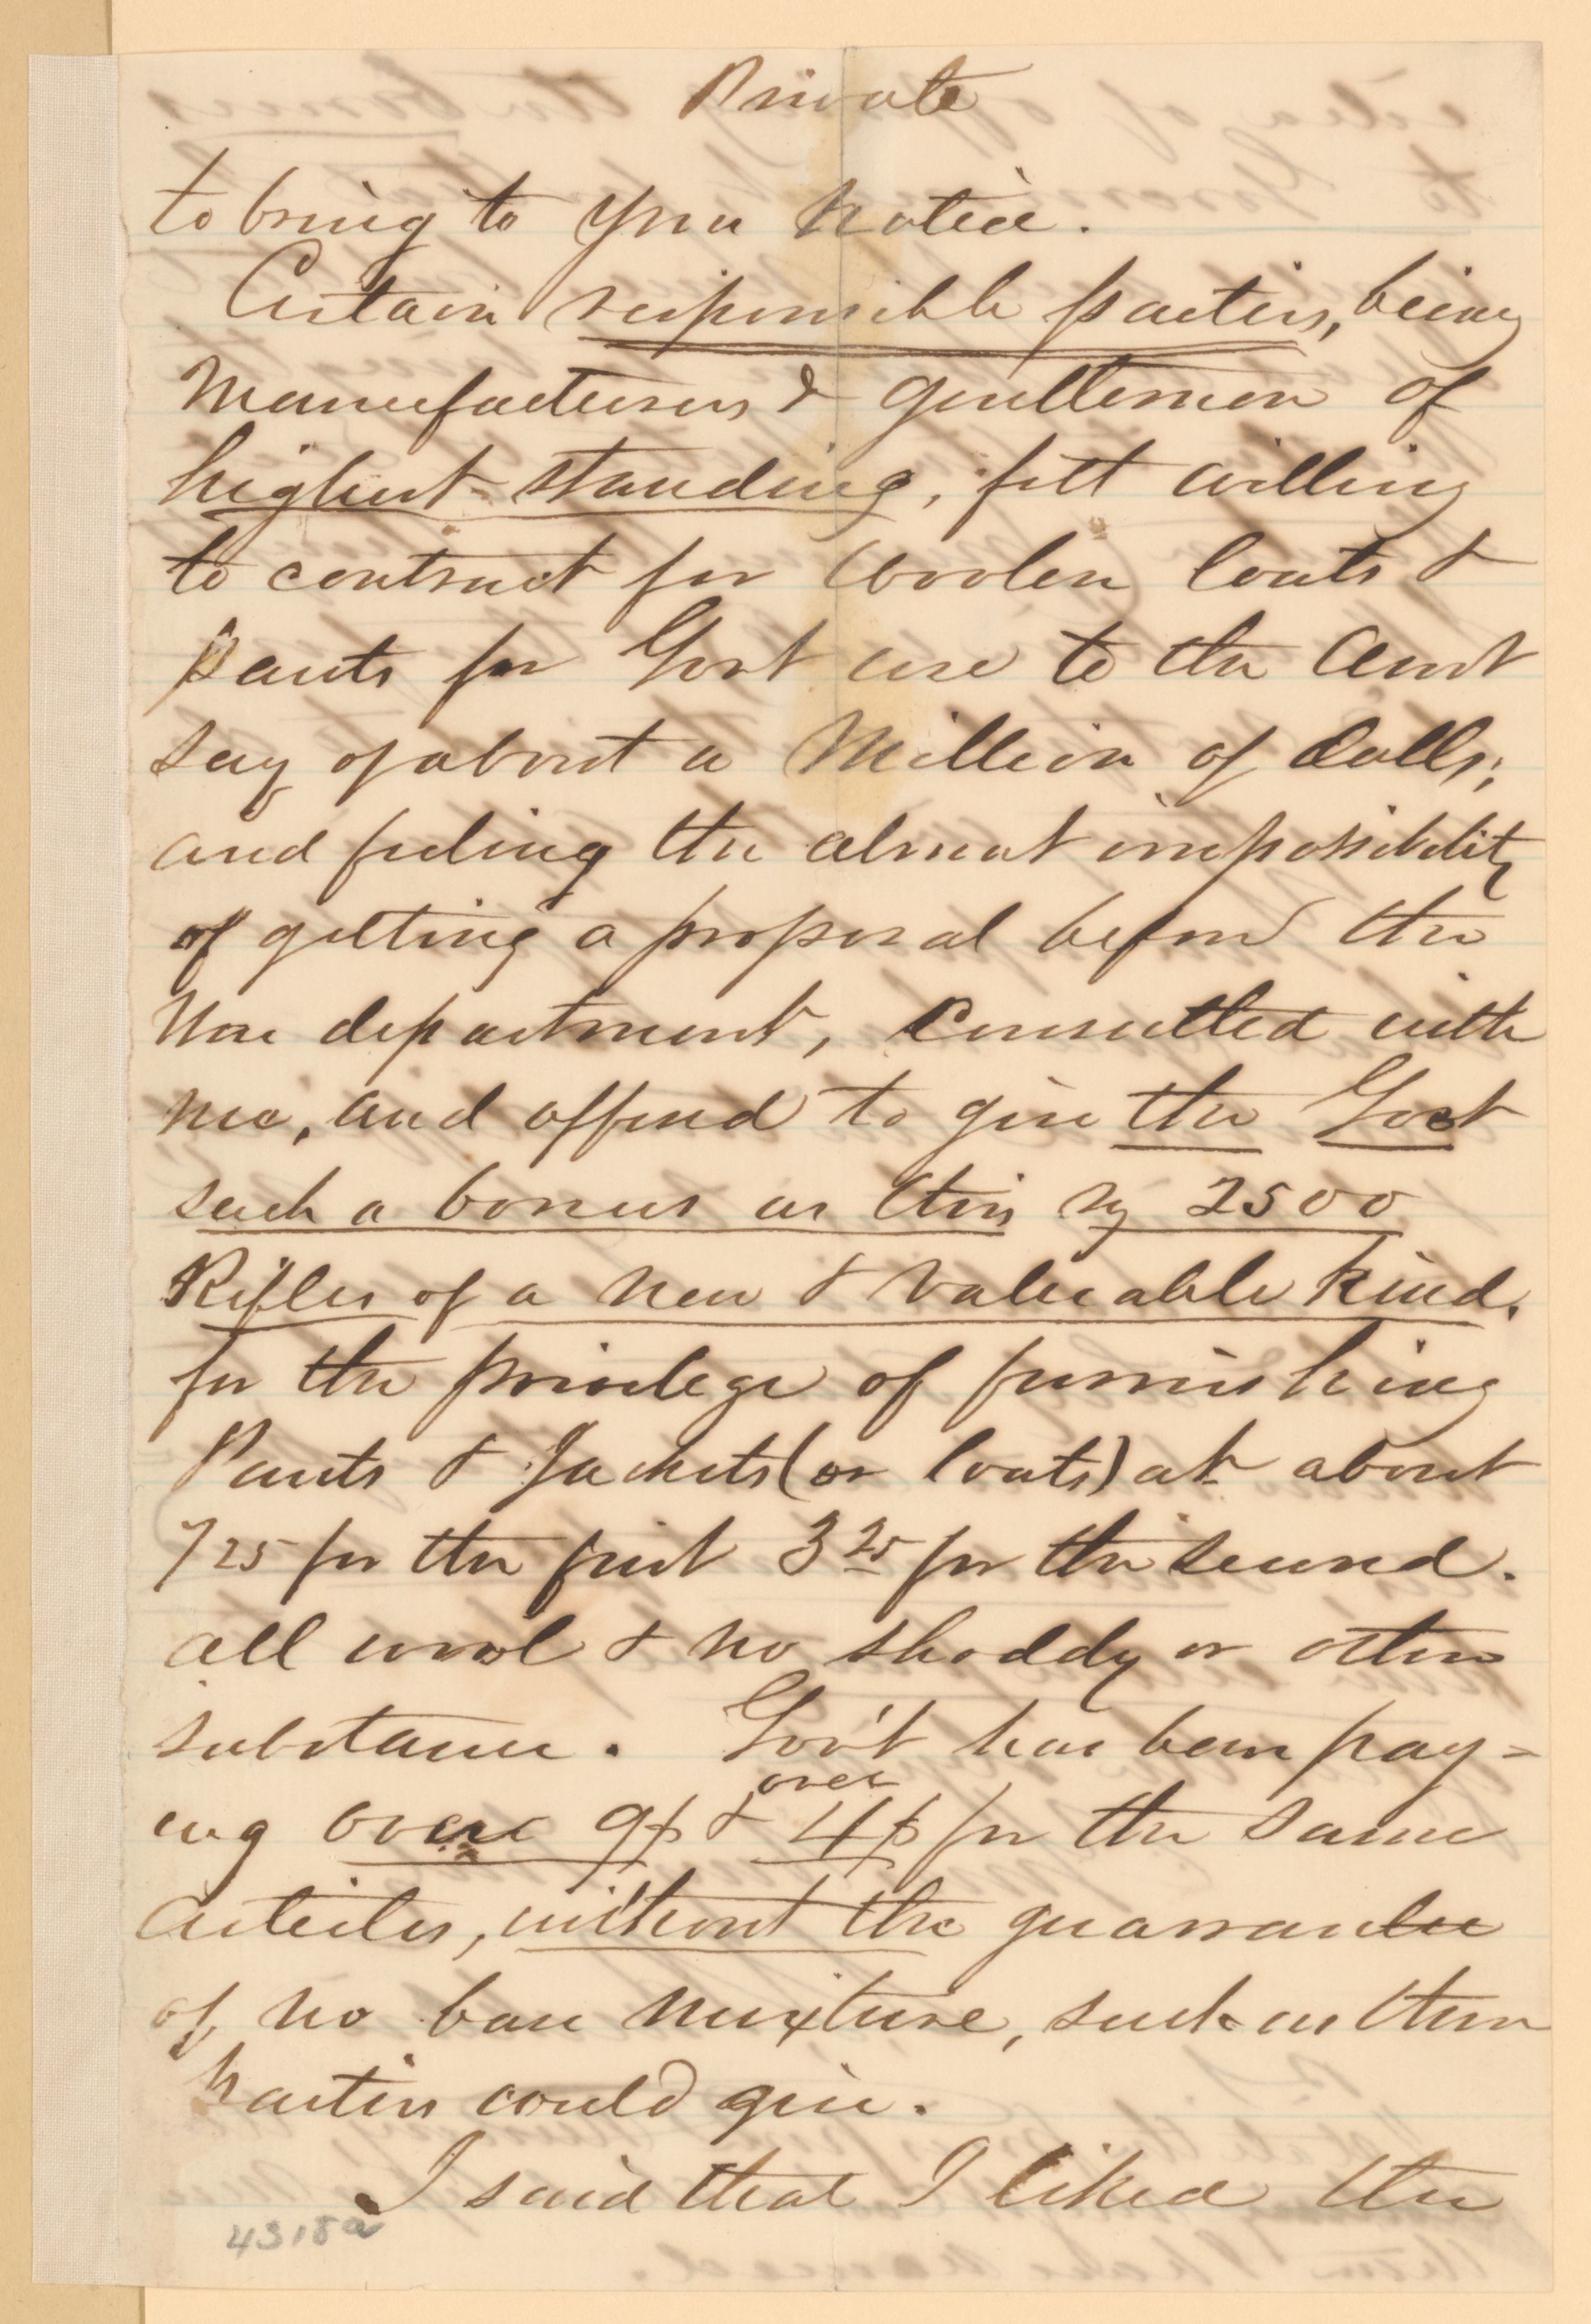 Private
to bring to your notice.
Certain responsible parties, being
manufacturers & gentlemen of
highest standing, felt willing
to contract for woolen coats &
pants for Govt use to the amt
say of about a million of dolls;
and feeling the almost impossibility
of getting a proposal before the
War department, consulted with
me, and offered to give the Govt
such a bonus as this say 2500
Rifles of a new & valuable kind.
for the privilege of furnishing
Pants & Jackets (or Coats) at about
7 25 for the first 3 25 for the second.
all wool & no shoddy or other
substance. Gov't has been pay=
ing over 9$ & over 4$ for the same
articles, without the guarrantee
of no base mixture, such as these
parties could give.
I said that I liked the
4318a